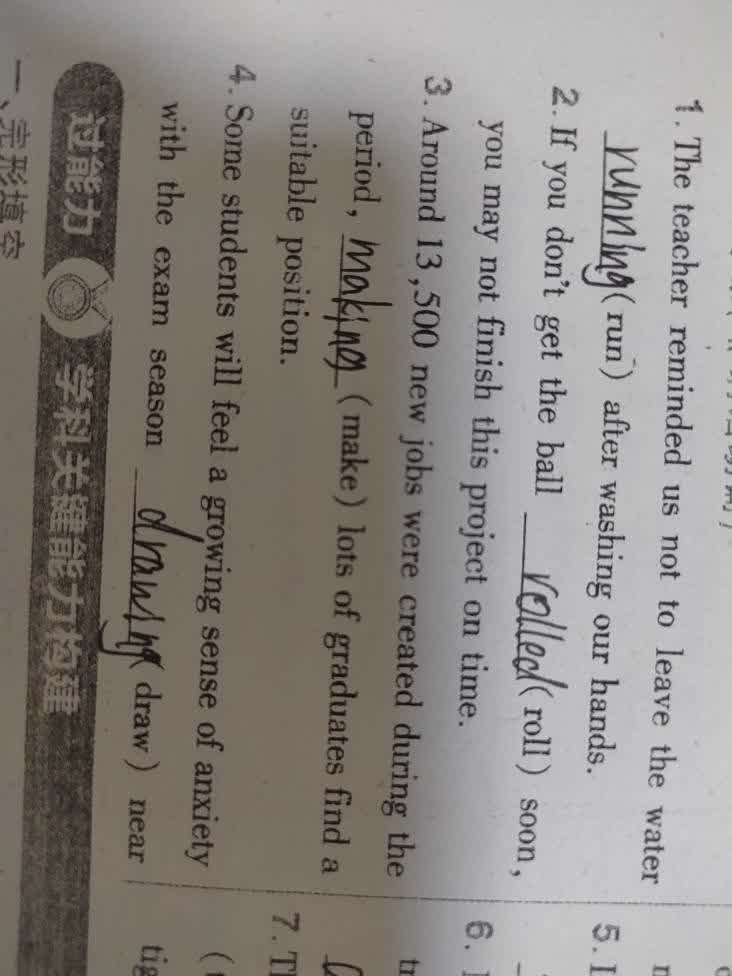 1. The teacher reminded us not to leave the water
running (run) after washing our hands.
2. If you don't get the ball rolled (roll) soon,
you may not finish this project on time.
3. Around 13,500 new jobs were created during the
period, making (make) lots of graduates find a
suitable position.
4. Some students will feel a growing sense of anxiety
with the exam season drawing (draw) near
过能力 学科关键能力构建
一、完形填空
5.
6.
7.